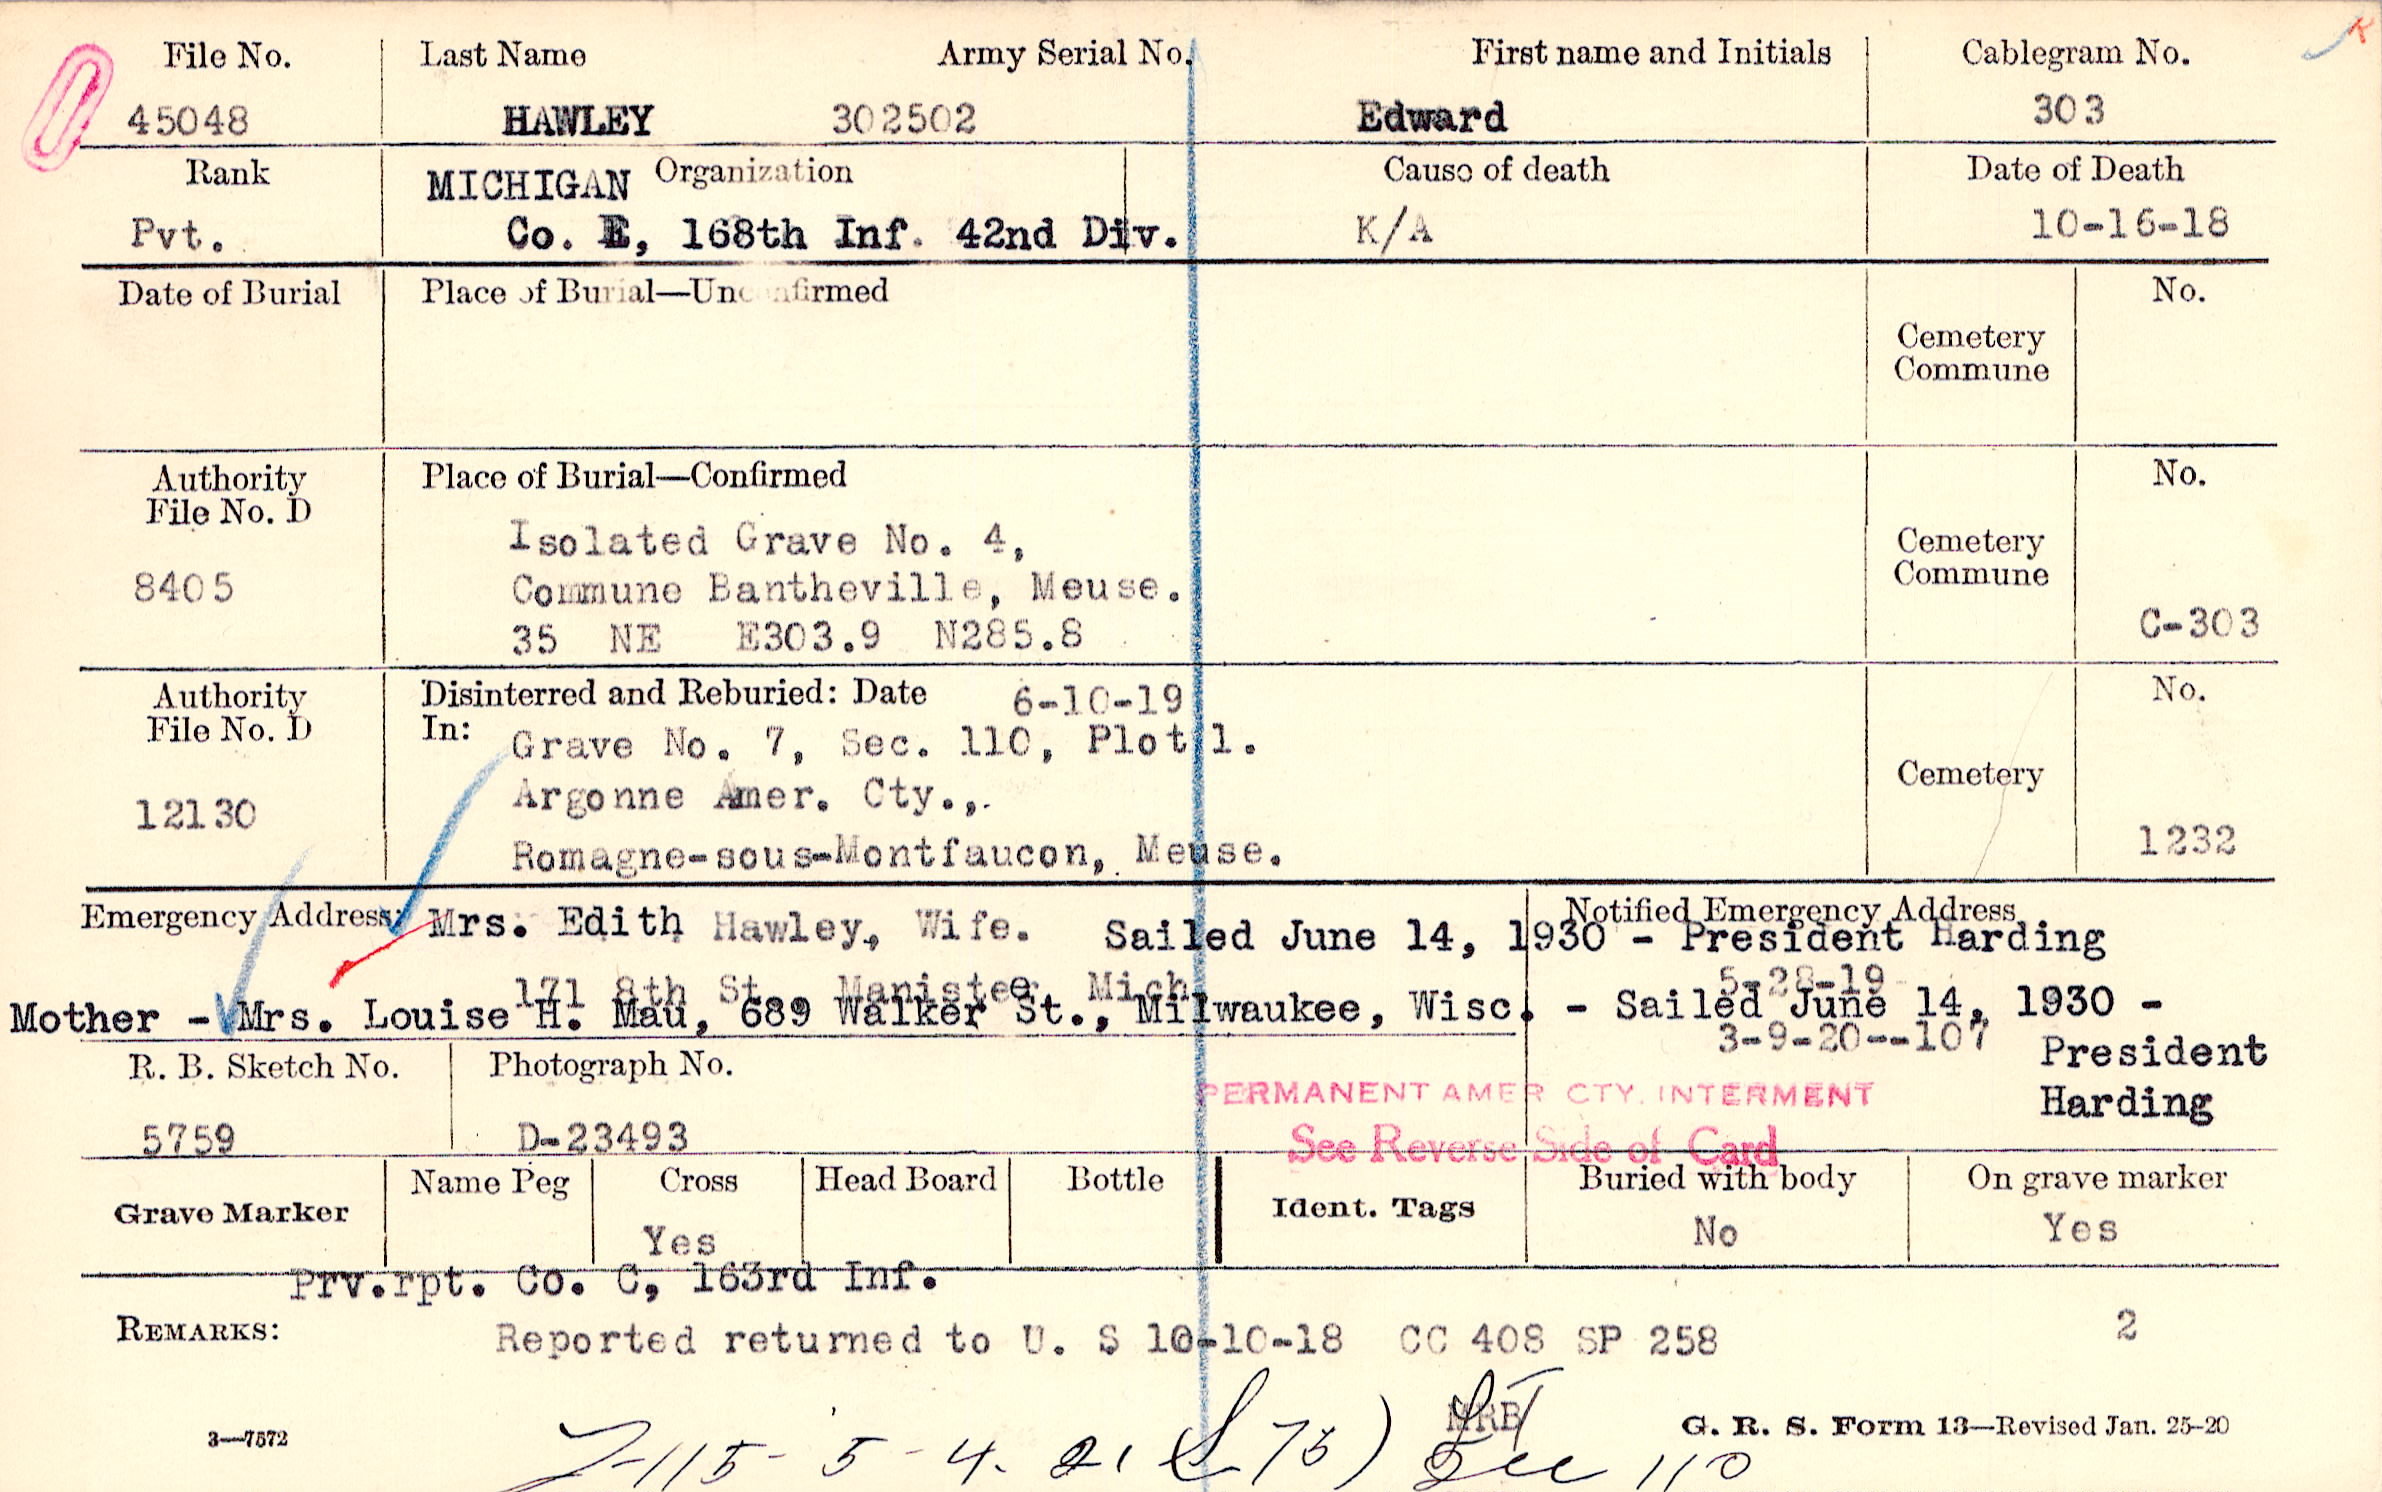 File No. Last Name Army Serial No. First name and Initials Cablegram No.
45048 HAWLEY 302502 Edward 303
Rank MICHIGAN Organization Cause of death Date of Death
Pvt. Co. E, 168th Inf. 42nd Div. K/A 10-16-18
Date of Burial Place of Burial—Unconfirmed No.
Cemetery
Commune
Authority Place of Burial—Confirmed No.
File No. D
Isolated Grave No. 4, Cemetery
8405 Commune Bantheville, Meuse. Commune
35 NE E303.9 N285.8 C-303
Authority Disinterred and Reburied: Date 6-10-19 No.
File No. D In: Grave No. 7, Sec. 110, Plot 1.
12130 Argonne Amer. Cty.,. Cemetery
Romagne-sous-Montfaucon, Meuse. 1232
Emergency Address: Mrs. Edith Hawley, Wife. Notified Emergency Address
Sailed June 14, 1930 - President Harding
171 8th St., Manistee, Mich. 5-28-19
Mother - Mrs. Louise H. Mau, 689 Walker St., Milwaukee, Wisc. - Sailed June 14, 1930 -
3-9-20--107 President
Harding
R. B. Sketch No. Photograph No.
PERMANENT AMER CTY. INTERMENT
5759 D-23493 See Reverse Side of Card
Grave Marker Name Peg Cross Head Board Bottle Ident. Tags Buried with body On grave marker
Yes No Yes
Prv.rpt. Co. C, 163rd Inf.
REMARKS: Reported returned to U. S 10-10-18 CC 408 SP 258 2
MRB
3—7572 G. R. S. Form 13—Revised Jan. 25-20
5-4-21 See 110